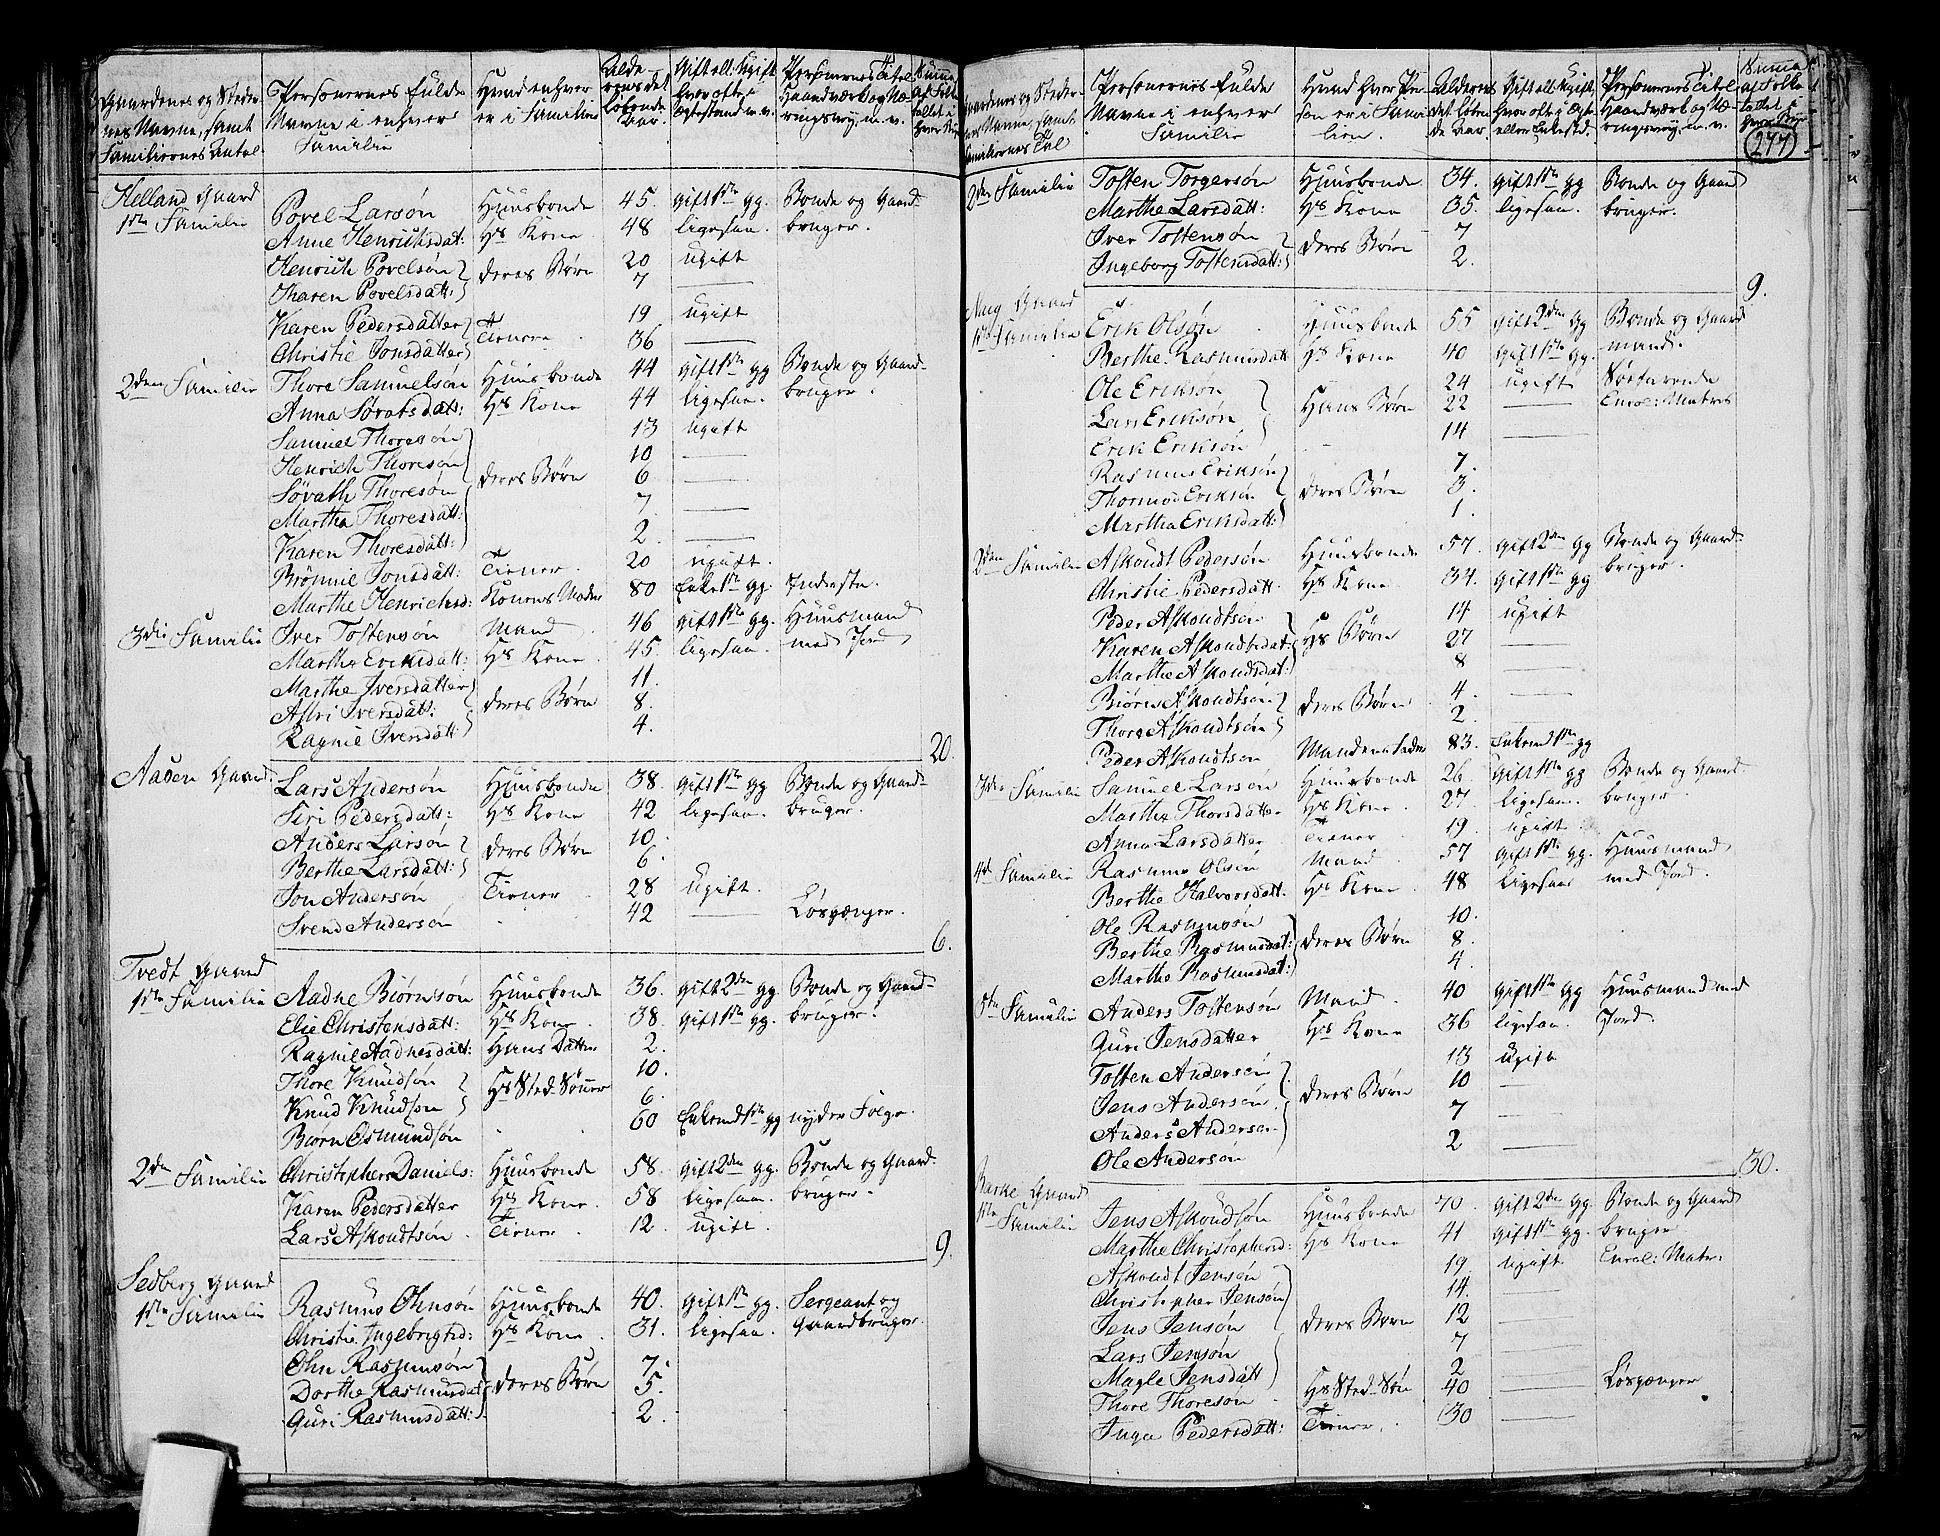 Gaardenes og Steder-
nes Navne, samt
Familiernes Antal
Personernes fulde
Navne i enhver
Familie
Hvad enhver
er i Familien
Alde-
rens det
løbende
Aar.
Gift ell: Ugift
hvor ofte i
Ægtestand m. v.
Personernes Titel,
Haandværk og Næ-
ringsvej, m. v.
Summa
Helland Gaard
1ste Familie Povel Larsøn Huusbonde 45. gift 1ste gg. Bonde og Gaard-
Anne Henrichsdat: Hs Kone 48 ligesaa. bruger.
Henrich Povelsøn } deres Børn 20 ugift
Karen Povelsdatt: } 7 —
Karen Pedersdatter } Tienere 19 ugift
Christie Jonsdatter } 36 —
2den Familie Thore Samuelsøn Huusbonde 44 gift 1ste gg Bonde og Gaard-
Anna Søvatsdatt: Hs Kone 44 ligesaa. bruger.
Samuel Thoresøn 13 ugift
Henrich Thoresøn 10 —
Søvath Thoresøn deres Børn 6 —
Martha Thoresdatt: 7 —
Karen Thoresdatt: 2. —
Brønnie Jonsdatt: Tiener. 20 ugift.
Marthe Henrichsd: Konens Moder 80 Enke 1ste gg. Inderste.
3die Familie Iver Tostensøn Mand 46 gift 1ste gg. Huusmand
Martha Eriksdatt: Hs Kone 45. ligesaa. med Jord
Marthe Iversdatter 11.
Astri Iversdatt: deres Børn 8.
Ragnil Iversdatt: 4.
20.
Aaden Gaard. Lars Andersøn Huusbonde 38. gift 1ste gg Bonde og Gaard-
Siri Pedersdatt: Hs Kone 42 ligesaa. bruger.
Anders Larsøn } deres Børn 10.
Berthe Larsdatt: } 6.
Jon Andersøn Tiener 28 ugift.
Svend Andersøn 42 — Løsgænger.
6.
Tvedt Gaard
1ste Familie Aadne Biørnsøn Huusbonde 36. gift 2den gg Bonde og Gaard-
Elie Christensdatt: Hs Kone 38. gift 1ste gg. bruger.
Ragnil Aadnesdatt: Hans Datter 2.
Thore Knudsøn } Hs Sted-Sønner 10.
Knud Knudsøn } 6.
Biørn Osmundsøn 60 Enkemd 1ste gg nyder Følge.
2den Familie Christopher Daniels: Huusbonde 58. gift 2den gg. Bonde og Gaard-
Karen Pedersdatter Hs Kone. 58 ligesaa. bruger.
Lars Askoudtsøn Tiener 12. ugift.
9.
Sedberg Gaard
1ste Familie Rasmus Ohnsøn Huusbonde 40. gift 1ste gg. Sergeant og
Christi Ingebrigtsd: Hs Kone. 31. ligesaa. Gaardbruger.
Ohn Rasmusøn 7.
Dorthe Rasmusdat deres Børn 5.
Guri Rasmusdatt: 2.
Gaardenes og Steder-
nes Navne, samt
Familiernes Tal
Personernes fulde
Navne i enhver
Familie
Hvad hver Per-
son er i Fami-
lien.
Alderens
det løben-
de Aar.
Gift ell. Ugift,
hvor ofte i Ægte-
eller Enkestd.
Personernes Titel,
Haandværk og Næ-
ringsvej, m. v.
Summa
af Folke
tallet i
hver
277
2den Familie Tosten Torgersøn Huusbonde 34. gift 1ste gg Bonde og Gaard
Marthe Larsdatt: Hs Kone 35. ligesaa. bruger.
Iver Tostensøn } deres Børn 7
Ingeborg Tostensdatt: } 2.
9.
Gaard
1ste Familie Erik Olsøn Huusbonde 55 gift 2den gg Bonde og Gaard
Berthe Rasmusdatt Hs Kone 40 gift 1ste gg. mand.
Ole Eriksøn 24 ugift Søefarende
Lars Eriksøn Hans Børn 22 — Enrol: Matros
Erik Eriksøn 14 —
Rasmus Eriksøn 7.
Thormod Eriksøn deres Børn 3.
Martha Eriksdatt: 1.
2den Familie Askoudt Pedersøn Huusbonde 57. gift 2den gg Bonde og Gaard-
Christie Pedersdatt. Hs Kone 34. gift 1ste gg bruger.
Peder Askoudtsøn 14 ugift
Karen Askoudtsdat: Hs Børn 27 —
Marthe Askoudsdat: 8 —
Biørn Askoudtsøn } deres Børn 4. —
Thore Askoudtsøn } 2. —
Peder Askoudtsøn Mandens Fader 83. Enkemd 1ste gg
3die Familie Samuel Larsøn Huusbonde 26. gift 1ste gg Bonde og Gaard-
Martha Thorsdatter Hs Kone 27. ligesaa. bruger.
Anna Larsdatter Tiener 19. ugift
4de Familie Rasmus Olsøn Mand 57 gift 1ste gg. Huusmand
Berthe Halvorsdatt: Hs Kone 48 ligesaa med Jord.
Ole Rasmusøn 10.
Berthe Rasmusdat: deres Børn 8.
Marthe Rasmusdat: 4.
5te Familie Anders Tostensøn Mand. 40 gift 1ste gg Huusmand med
Guri Jensdatter Hs Kone 36 ligesaa. Jord.
Tosten Andersøn 13 ugift
Jens Andersøn deres Børn 10 —
Anders Andersen 7 —
Ole Andersøn 2 —
30.
Gaard
1ste Familie Jens Askoudsøn Huusbonde 70. gift 2den gg. Bonde og Gaard
Marthe Christophersd: Hs Kone 41 gift 1ste gg. bruger
Askoudt Jensøn 19 ugift Enrol: Matr:
Christopher Jensøn 14. —
Jens Jensøn deres Børn 12 —
Lars Jensøn 7 —
Magle Jensdatt 2 —
Thore Thoresøn Hs Sted-Søn 40 — Løsgænger
Inga Pedersdatt: Tiener. 30 —